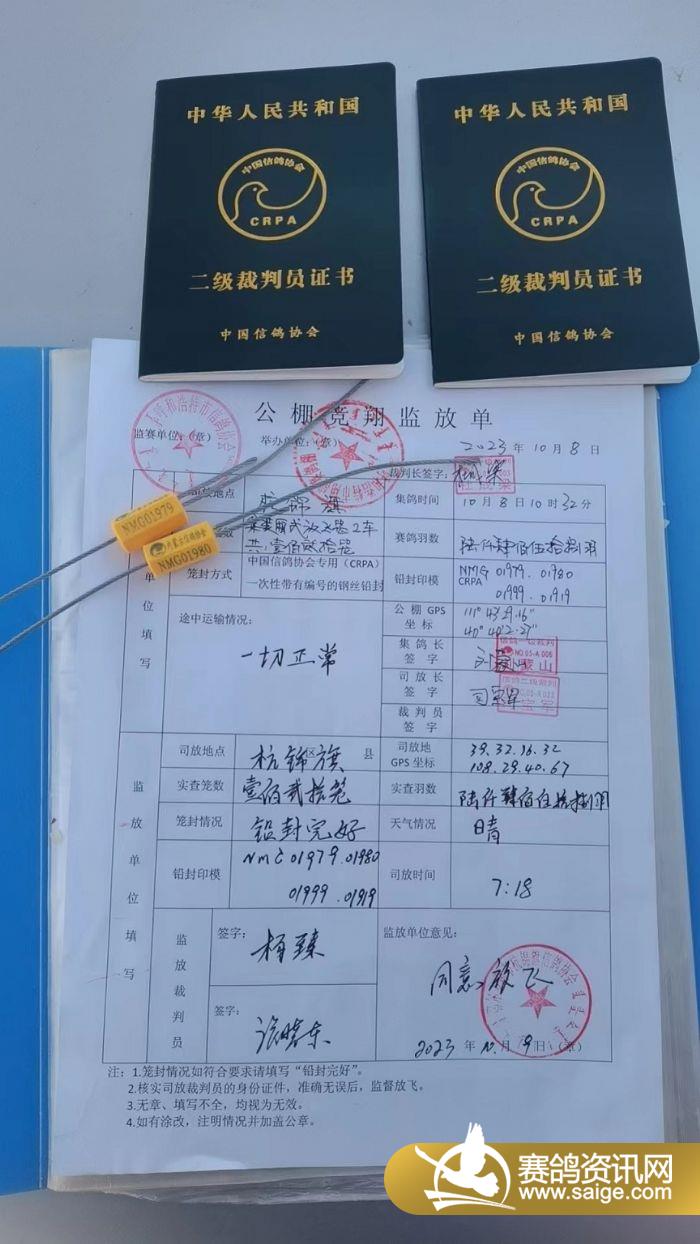 中华人民共和国
中国信鸽协会
CRPA
二级裁判员证书
中国信鸽协会
中华人民共和国
中国信鸽协会
CRPA
二级裁判员证书
中国信鸽协会
公棚竞翔监放单
呼和浩特市信鸽协会
监赛单位:(章) 举办单位:(章) 2023年10月8日
裁判长签字:
地点 杭锦旗 集鸽时间 10月8日10时32分
NMG01979
内蒙古信鸽协会
NMG01980
2车
共:壹佰贰拾笼 赛鸽羽数 陆仟肆佰伍拾捌羽
笼封方式 中国信鸽协会专用(CRPA)
一次性带有编号的钢丝铅封 铅封印模 NMG 01979.01980
CRPA 01999.01919
单位填写
途中运输情况:
一切正常
公棚GPS坐标 111°43′29.16″
40°40′2.27″
集鸽长签字
信鸽一级裁判
NO.05-A 006
司放长签字
信鸽二级裁判
裁判员签字
监放单位填写
司放地点 杭锦旗 区县 司放地GPS坐标 39.32.16.32
108.29.40.67
实查笼数 壹佰贰拾笼 实查羽数 陆仟肆佰伍拾捌羽
笼封情况 铅封完好 天气情况 晴
铅封印模 NMG 01979.01980
01999.01919 司放时间 7:18
监放裁判员
签字: 杨臻
签字:
监放单位意见:
同意放飞
杭锦旗信鸽协会
2023年10月9日(章)
注:1.笼封情况如符合要求请填写“铅封完好”。
2.核实司放裁判员的身份证件,准确无误后,监督放飞。
3.无章、填写不全,均视为无效。
4.如有涂改,注明情况并加盖公章。
赛鸽资讯网
www.saige.com